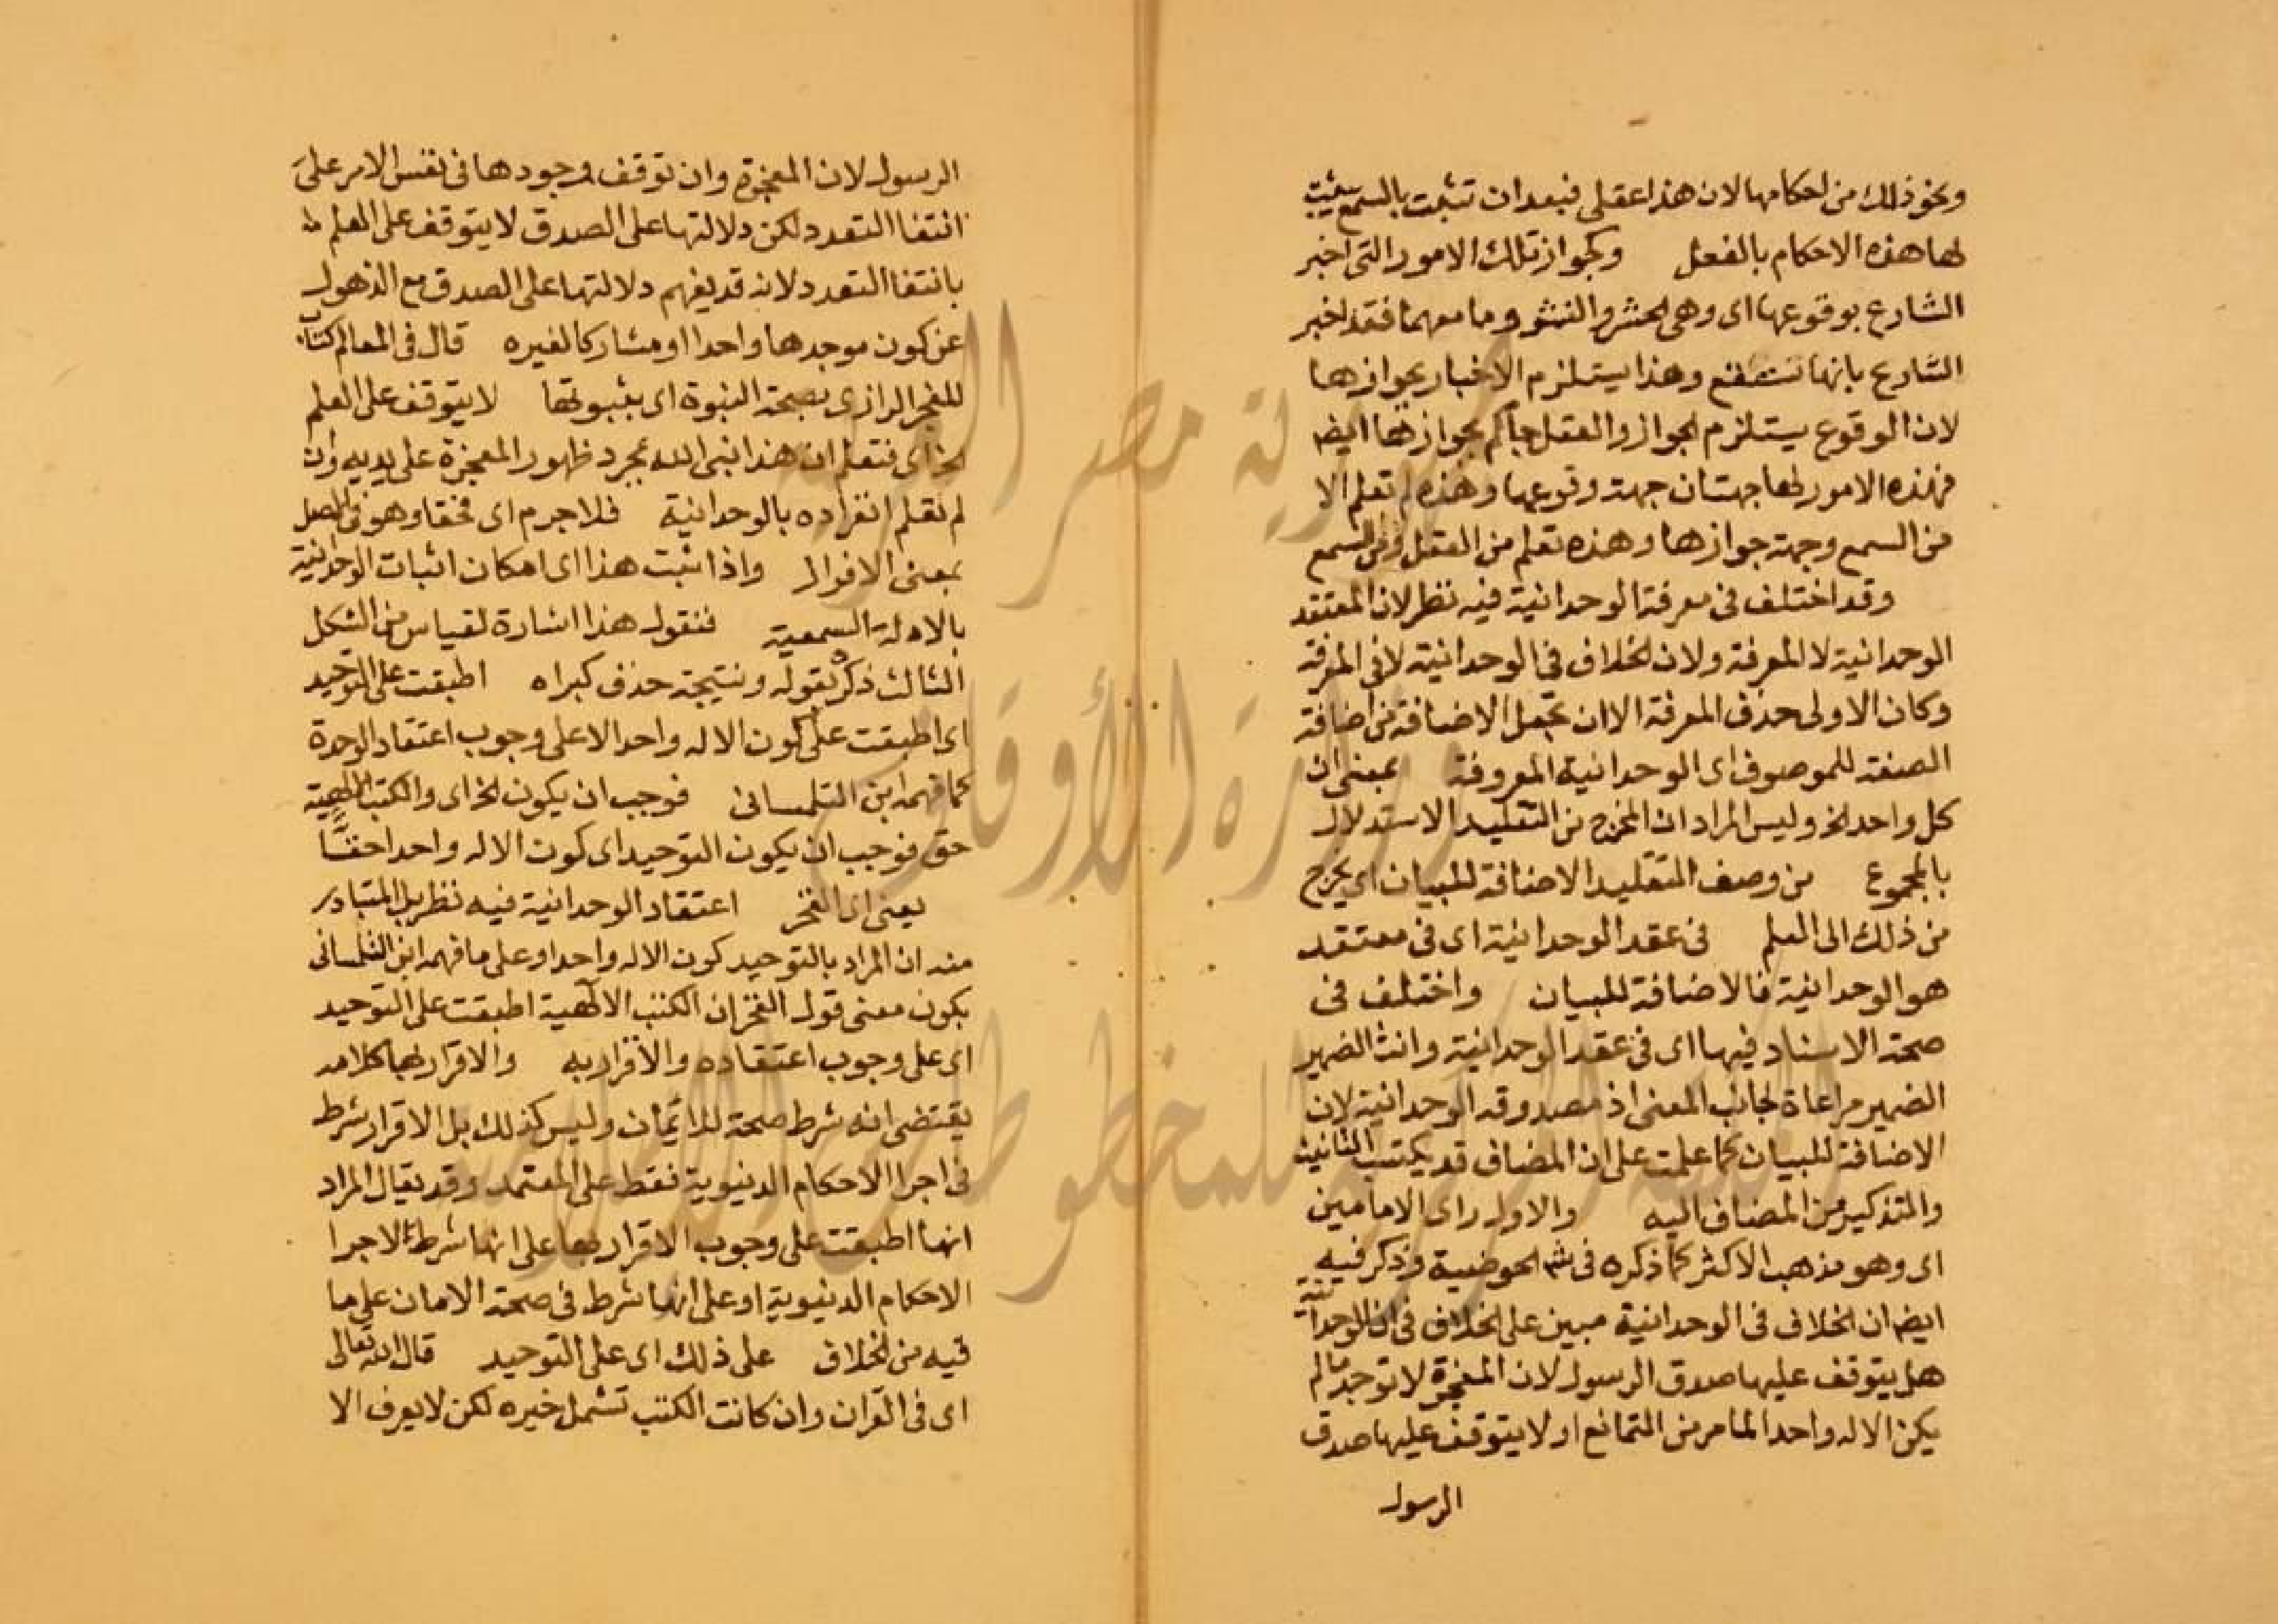 ونحو ذلك من احكامها لان هذا عقلي فبعد ان تثبت بالسمع يثبت
لها هذه الاحكام بالفعل وكجواز تلك الامور التى اخبر
الشارع بوقوعها اى وهى الحشر والنشر وما معهما فقد اخبر
الشارع بانها ستقع وهذا يستلزم الاخبار بجوازها
لان الوقوع يستلزم الجواز والعقل حاكم بجوازها ايضا
فهذه الامور لها جهتان جهة وقوعها وهذه لم تعلم الا
من السمع وجهة جوازها وهذه تعلم من العقل ومن السمع
وقد اختلف فى معرفة الوحدانية فيه نظر لان المعتقد
الوحدانية لا المعرفة ولان الخلاف فى الوحدانية لا فى المعرفة
وكان الاولى حذف المعرفة الا ان تجعل الاضافة من اضافة
الصفة للموصوف اى الوحدانية المعروفة بمعنى ان
كل واحد الخ وليس المراد ان المخرج من التقليد الاستدلال
بالمجموع من وصف التقليد الاضافة للبيان اى يخرج
من ذلك الى العلم فى عقد الوحدانية اى فى معتقد
هو الوحدانية فالاضافة للبيان واختلف فى
صحة الاسناد فيها اى فى عقد الوحدانية وانث الضمير
الضمير مراعاة لجانب المعنى اذ مصدوقه الوحدانية لان
الاضافة للبيان كما علمت على ان المضاف قد يكتسب التانيث
والتذكير من المضاف اليه والاول راى الامامين
اى وهو مذهب الاكثر كما ذكره فى شم الحوضية وذكر فيه
ايضا ان الخلاف فى الوحدانية مبين على الخلاف فى ان الوحدانية
هل يتوقف عليها صدق الرسول لان المعجزة لا توجد ما لم
يكن الاله واحدا لما مر من التمانع او لا يتوقف عليها صدق
الرسول
الرسول لان المعجزة وان توقف وجودها فى نفس الامر على
انتفا التعدد لكن دلالتها على الصدق لا يتوقف على العلم
بانتفا التعدد لانه قد يفهم دلالتها على الصدق مع الذهول
عن كون موجدها واحدا او مشاركا لغيره قال فى المعالم كتاب
للفخر الرازى بصحة النبوة اى بثبوتها لا يتوقف على العلم
الخ اى فتعلم ان هذا نبى الله بمجرد ظهور المعجزة على يديه وان
لم نعلم انفراده بالوحدانية فلا جرم اى فحقا وهو فى الاصل
بمعنى الافوال واذا ثبت هذا اى امكان اثبات الوحدانية
بالادلة السمعية فنقول هذا اشارة لقياس من الشكل
الثالث ذكره بقوله ونتيجته حذف كبراه اطبقت على التوحيد
اى اطبقت على كون الاله واحدا لا على وجوب اعتقاد الوحدة
كما فهمه ابن التلمسانى فوجب ان يكون الخ اى والكتب الالهية
حق فوجب ان يكون التوحيد اى كون الاله واحدا حقا
يعنى اى الفخر اعتقاد الوحدانية فيه نظر بل المتبادر
منه ان المراد بالتوحيد كون الاله واحدا وعلى ما فهمه ابن التلمسانى
يكون معنى قول الفخر ان الكتب الالهية اطبقت على التوحيد
اى على وجوب اعتقاده والاقرار به والاقرار بها كلامه
يقتضى انه شرط صحة للايمان وليس كذلك بل الاقرار شرط
فى اجرا الاحكام الدنيوية فقط على المعتمد وقد يقال المراد
انها اطبقت على وجوب الاقرار بها على انها شرط لاجرا
الاحكام الدنيوية او على انها شرط فى صحة الايمان على ما
فيه من الخلاف على ذلك اى على التوحيد قال الله تعالى
اى فى القران وان كانت الكتب تشمل غيره لكن لا يعرف الا